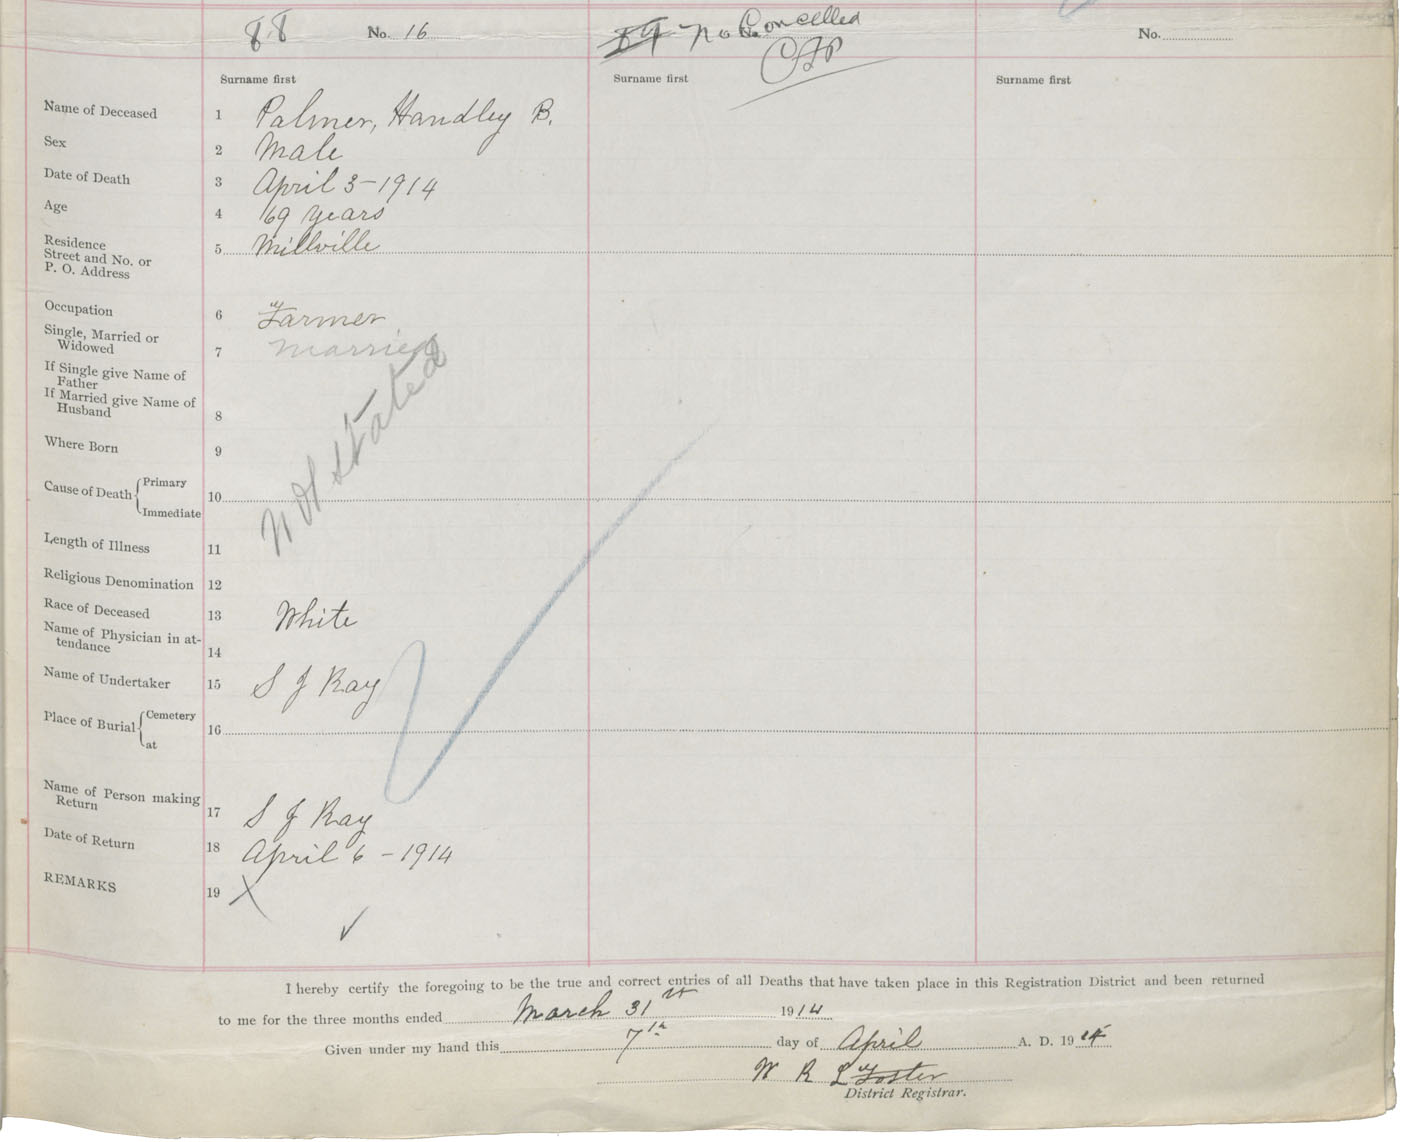 88 No. 16 89 No Cancelled No.
CFP
Surname first Surname first Surname first
Name of Deceased 1 Palmer, Handley B.
Sex 2 Male
Date of Death 3 April 3-1914
Age 4 69 years
Residence
Street and No. or
P. O. Address 5 Millville
Occupation 6 Farmer
Single, Married or
Widowed 7 Married
If Single give Name of
Father
If Married give Name of
Husband 8
Not Stated
Where Born 9
Cause of Death Primary
Immediate 10
Length of Illness 11
Religious Denomination 12
Race of Deceased 13 White
Name of Physician in at-
tendance 14
Name of Undertaker 15 S J Kay
Place of Burial Cemetery
at 16
Name of Person making
Return 17 S J Kay
Date of Return 18 April 6-1914
REMARKS 19 X
I hereby certify the foregoing to be the true and correct entries of all Deaths that have taken place in this Registration District and been returned
to me for the three months ended March 31st 1914
Given under my hand this 7th day of April A. D. 1914
W R L Foster
District Registrar.